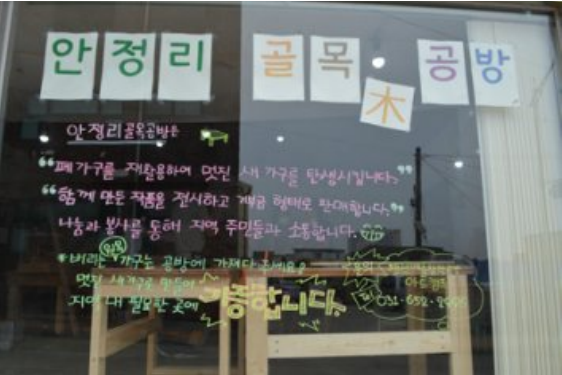 안정리 골목 공방
木
안정리골목공방은
"폐가구를 재활용하여 멋진 새 가구를 탄생시킵니다."
"함께 만든 작품을 전시하고 계금 형태로 판매합니다."
나눔과 봉사를 통해 지역 주민들과 소통합니다.
원목
*버리는 가구는 공방에 가져다 주세요?
멋진 새가구로 만들어
지역 내 필요한 곳에 기증합니다.
031-652-